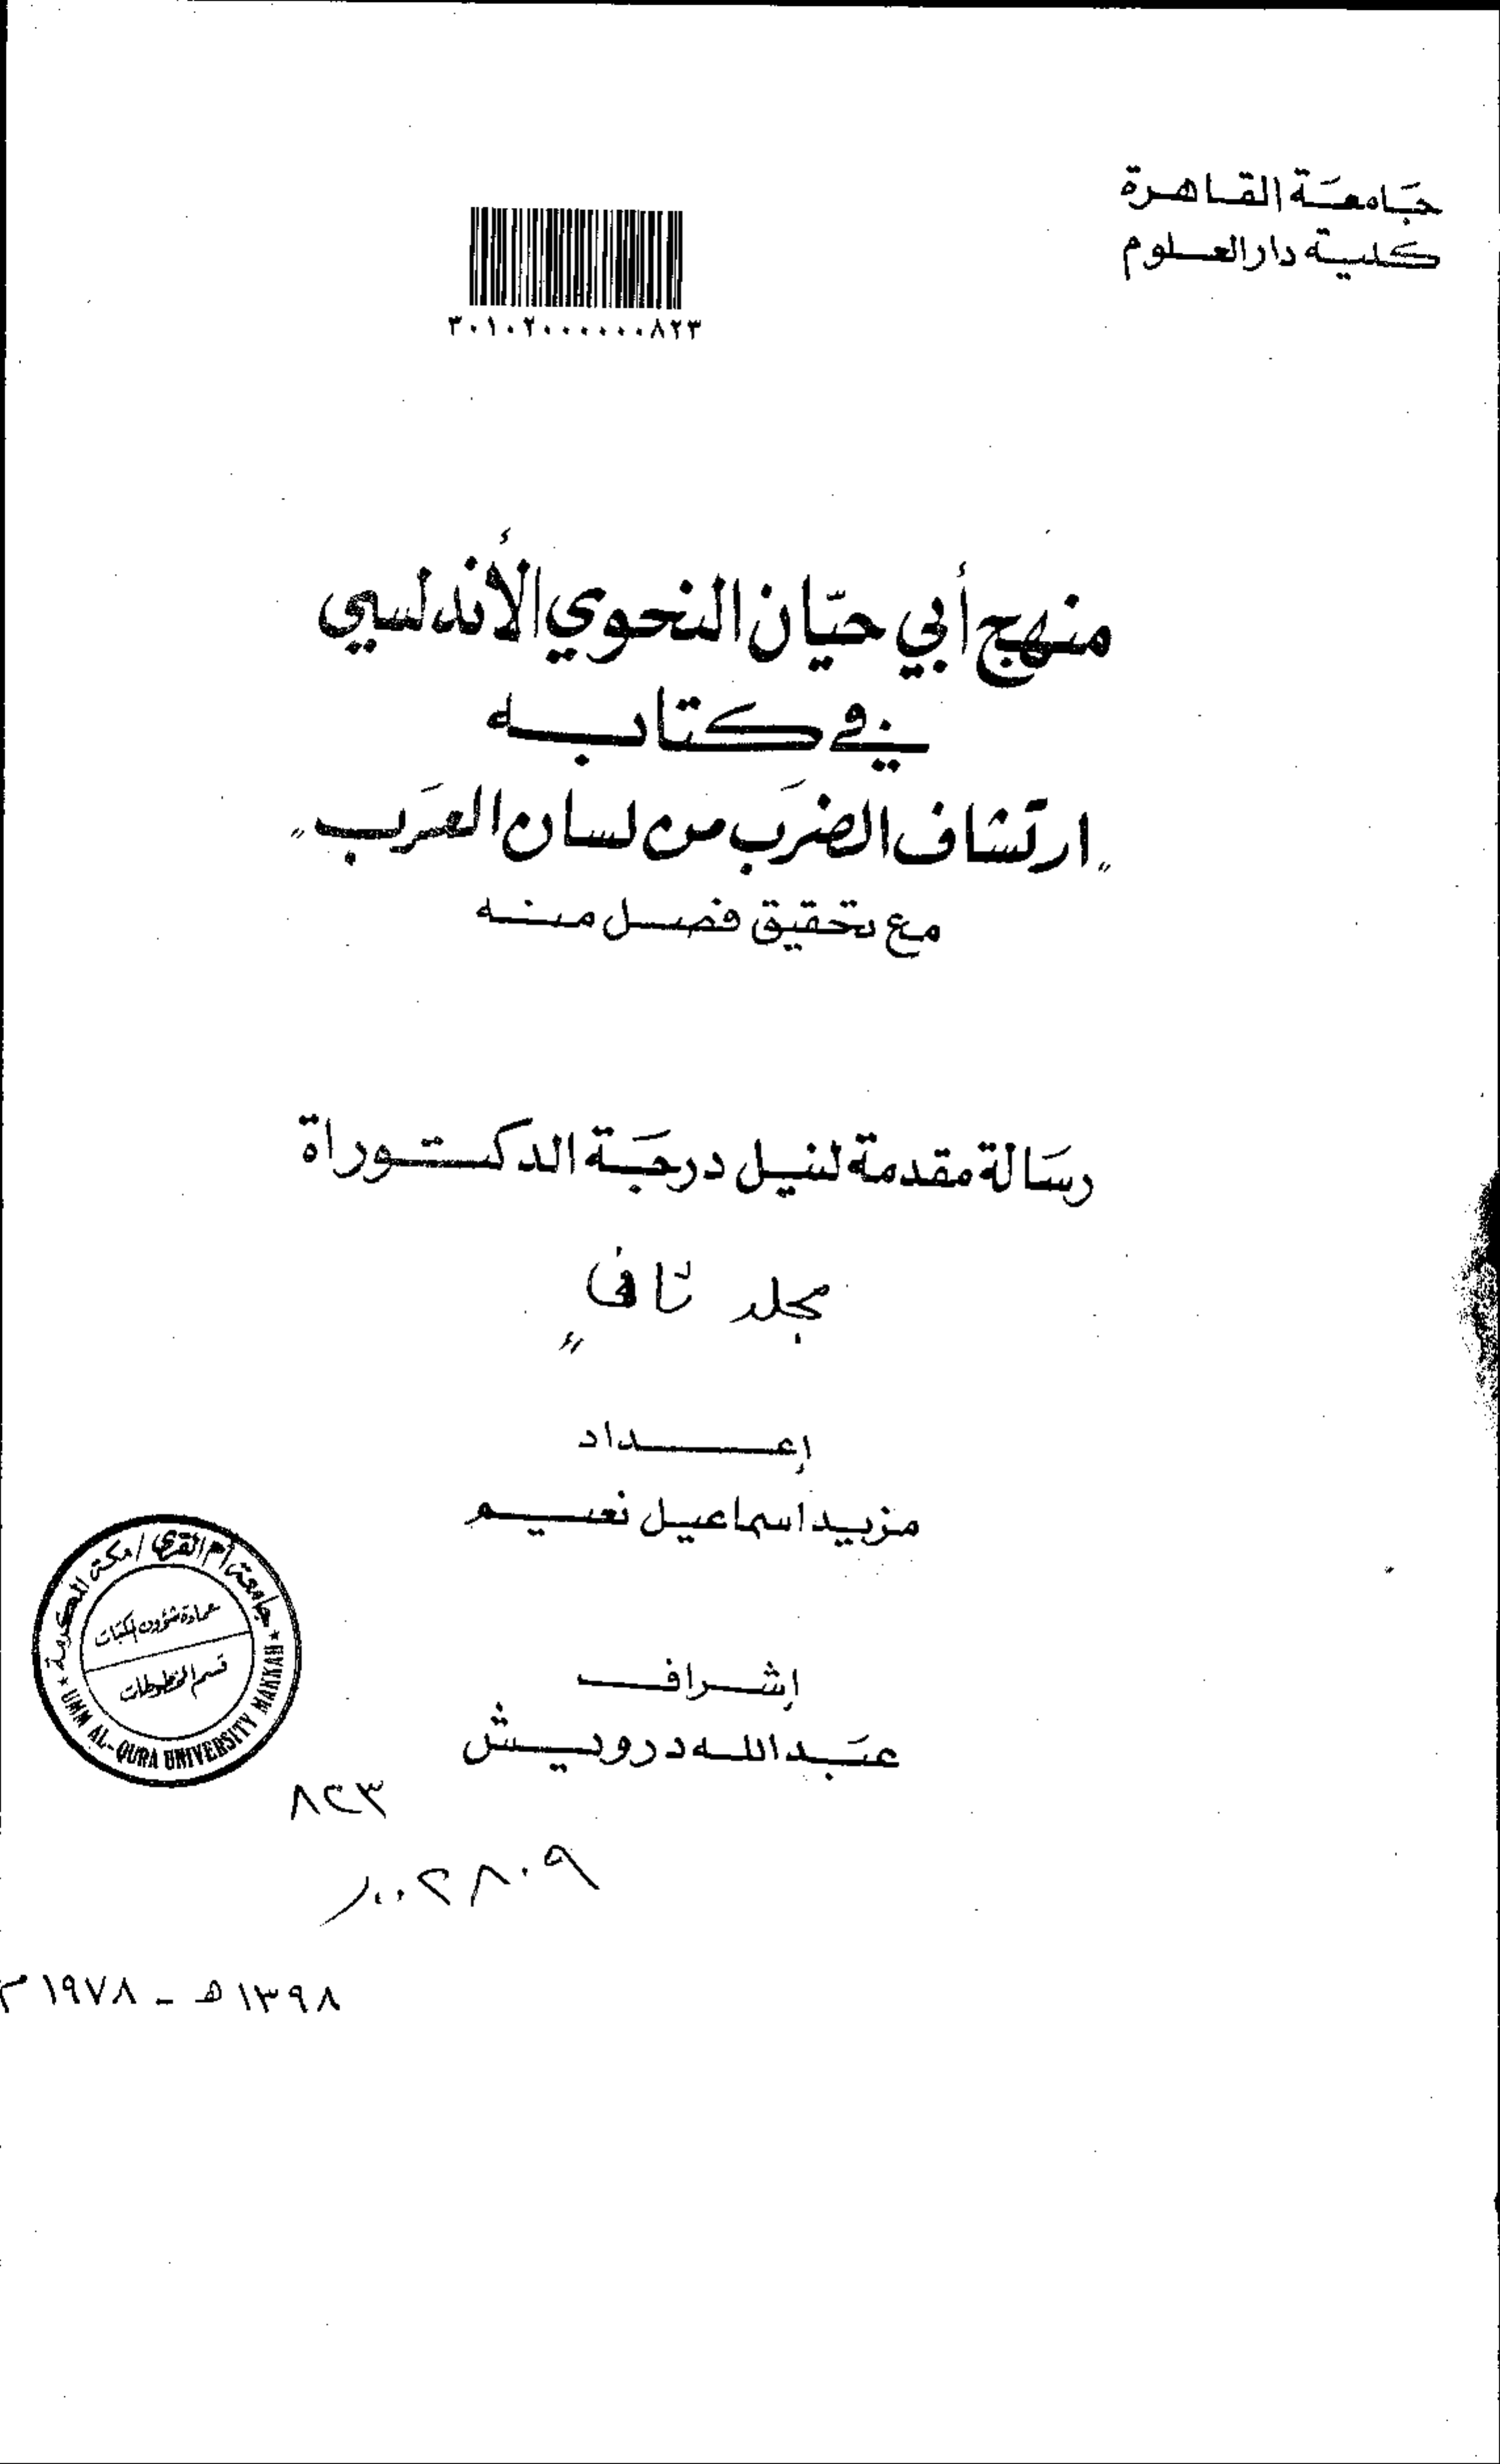 جَامعَة القاهرة
كلية دار العلوم
٣٠١٠٢٠٠٠٠٠٠٨٢٣
منهج أبي حيّان النحوي الأندلسي
في كتابه
"ارتشاف الضرَب من لسان العرَب"
مع تحقيق فصل منه
رسَالة مقدمة لنيل درجَة الدكتوراة
مجلد ثانٍ
إعداد
مزيد اسماعيل نعيم
إشراف
عبَد الله درويش
جامعة أم القرى / مكة المكرمة
عمادة شؤون المكتبات
قسم المخطوطات
UMM AL-QURA UNIVERSITY MAKKAH
٨٢٣
١٣٩٨ هـ - ١٩٧٨ م